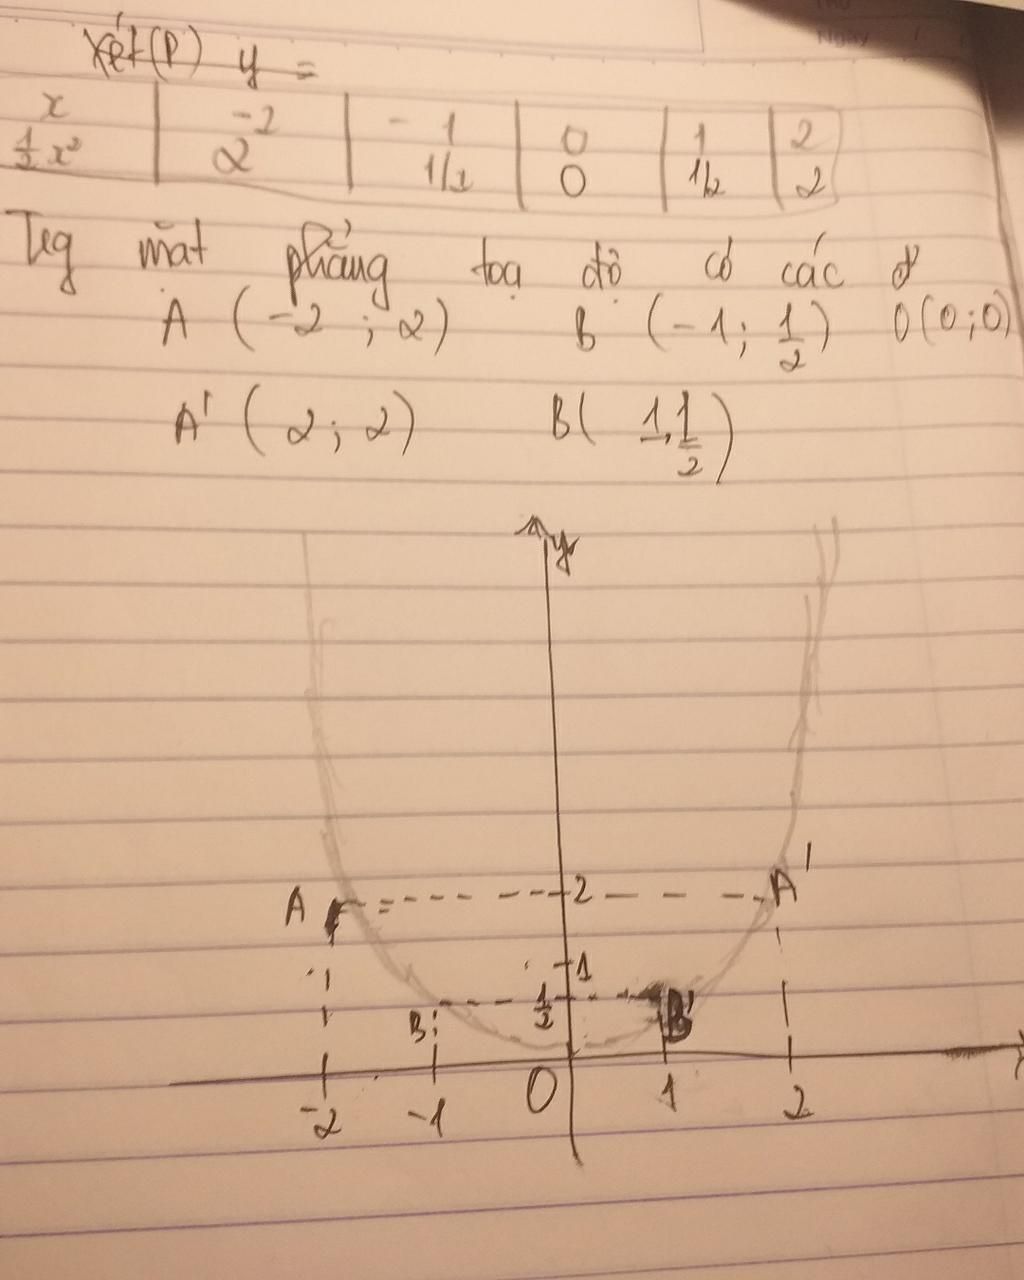 Xét (P) y =
x | -2 | -1 | 0 | 1 | 2
1/2 x² | 2 | 1/2 | 0 | 1/2 | 2
mặt phẳng toạ độ có các đ'
A (-2 ; 2) B (-1 ; 1/2) O(0 ; 0)
A' (2 ; 2) B( 1, 1/2)
y
A 2 A'
1
B 1/2 B'
O
-2 -1 1 2 x